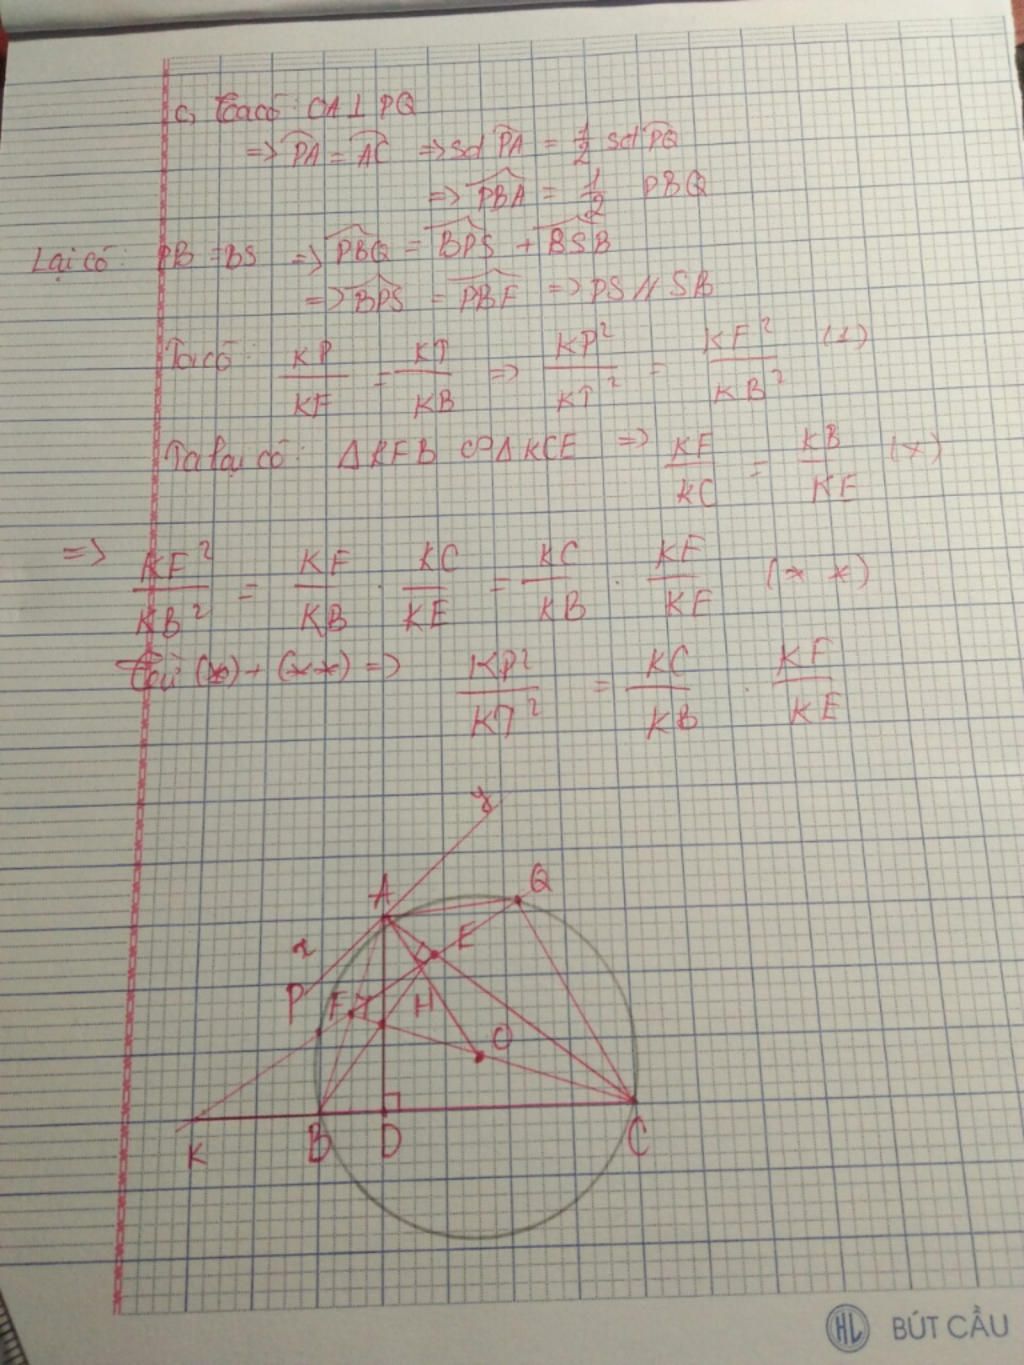 c, Ta có: OA ⊥ PQ
=> PA = AC => sđ PA = 1/2 sđ PQ
=> PBA = 1/2 PBQ
Lại có: PB = BS => PBQ = BPS + BSB
=> BPS = PBF => PS // SB
Ta có: KP/KF = KT/KB => KP²/KT² = KF²/KB² (1)
Ta lại có: Δ KFB ∽ Δ KCE => KF/KC = KB/KE (*)
=> KF²/KB² = KF/KB . KC/KE = KC/KB . KF/KE (* *)
Từ (*) + (**) => KP²/KT² = KC/KB . KF/KE
y
A Q
x E
P F T H
O
K B D C
HL BÚT CẦU